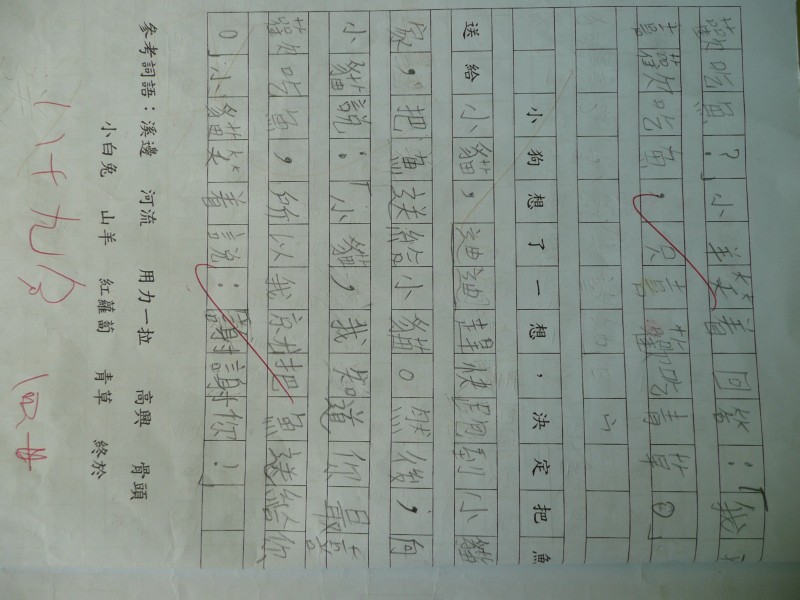 歡吃魚？」小羊笑着回答：「我
喜歡吃魚，只喜歡吃青草。」
小狗想了一想，決定把魚
送給小貓，迪迪趕快跑到小貓
家，把魚送給小貓。然後，向
小貓說：「小貓，我知道你最喜
歡吃魚，所以我把魚送給你
。」小貓笑着說：「謝謝你！」
參考詞語：溪邊 河流 用力一拉 高興 骨頭
小白兔 山羊 紅蘿蔔 青草 終於
八十九分